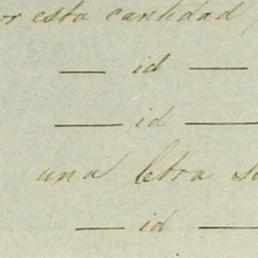 or esta cantidad
— id —
— id —
una letra
— id —